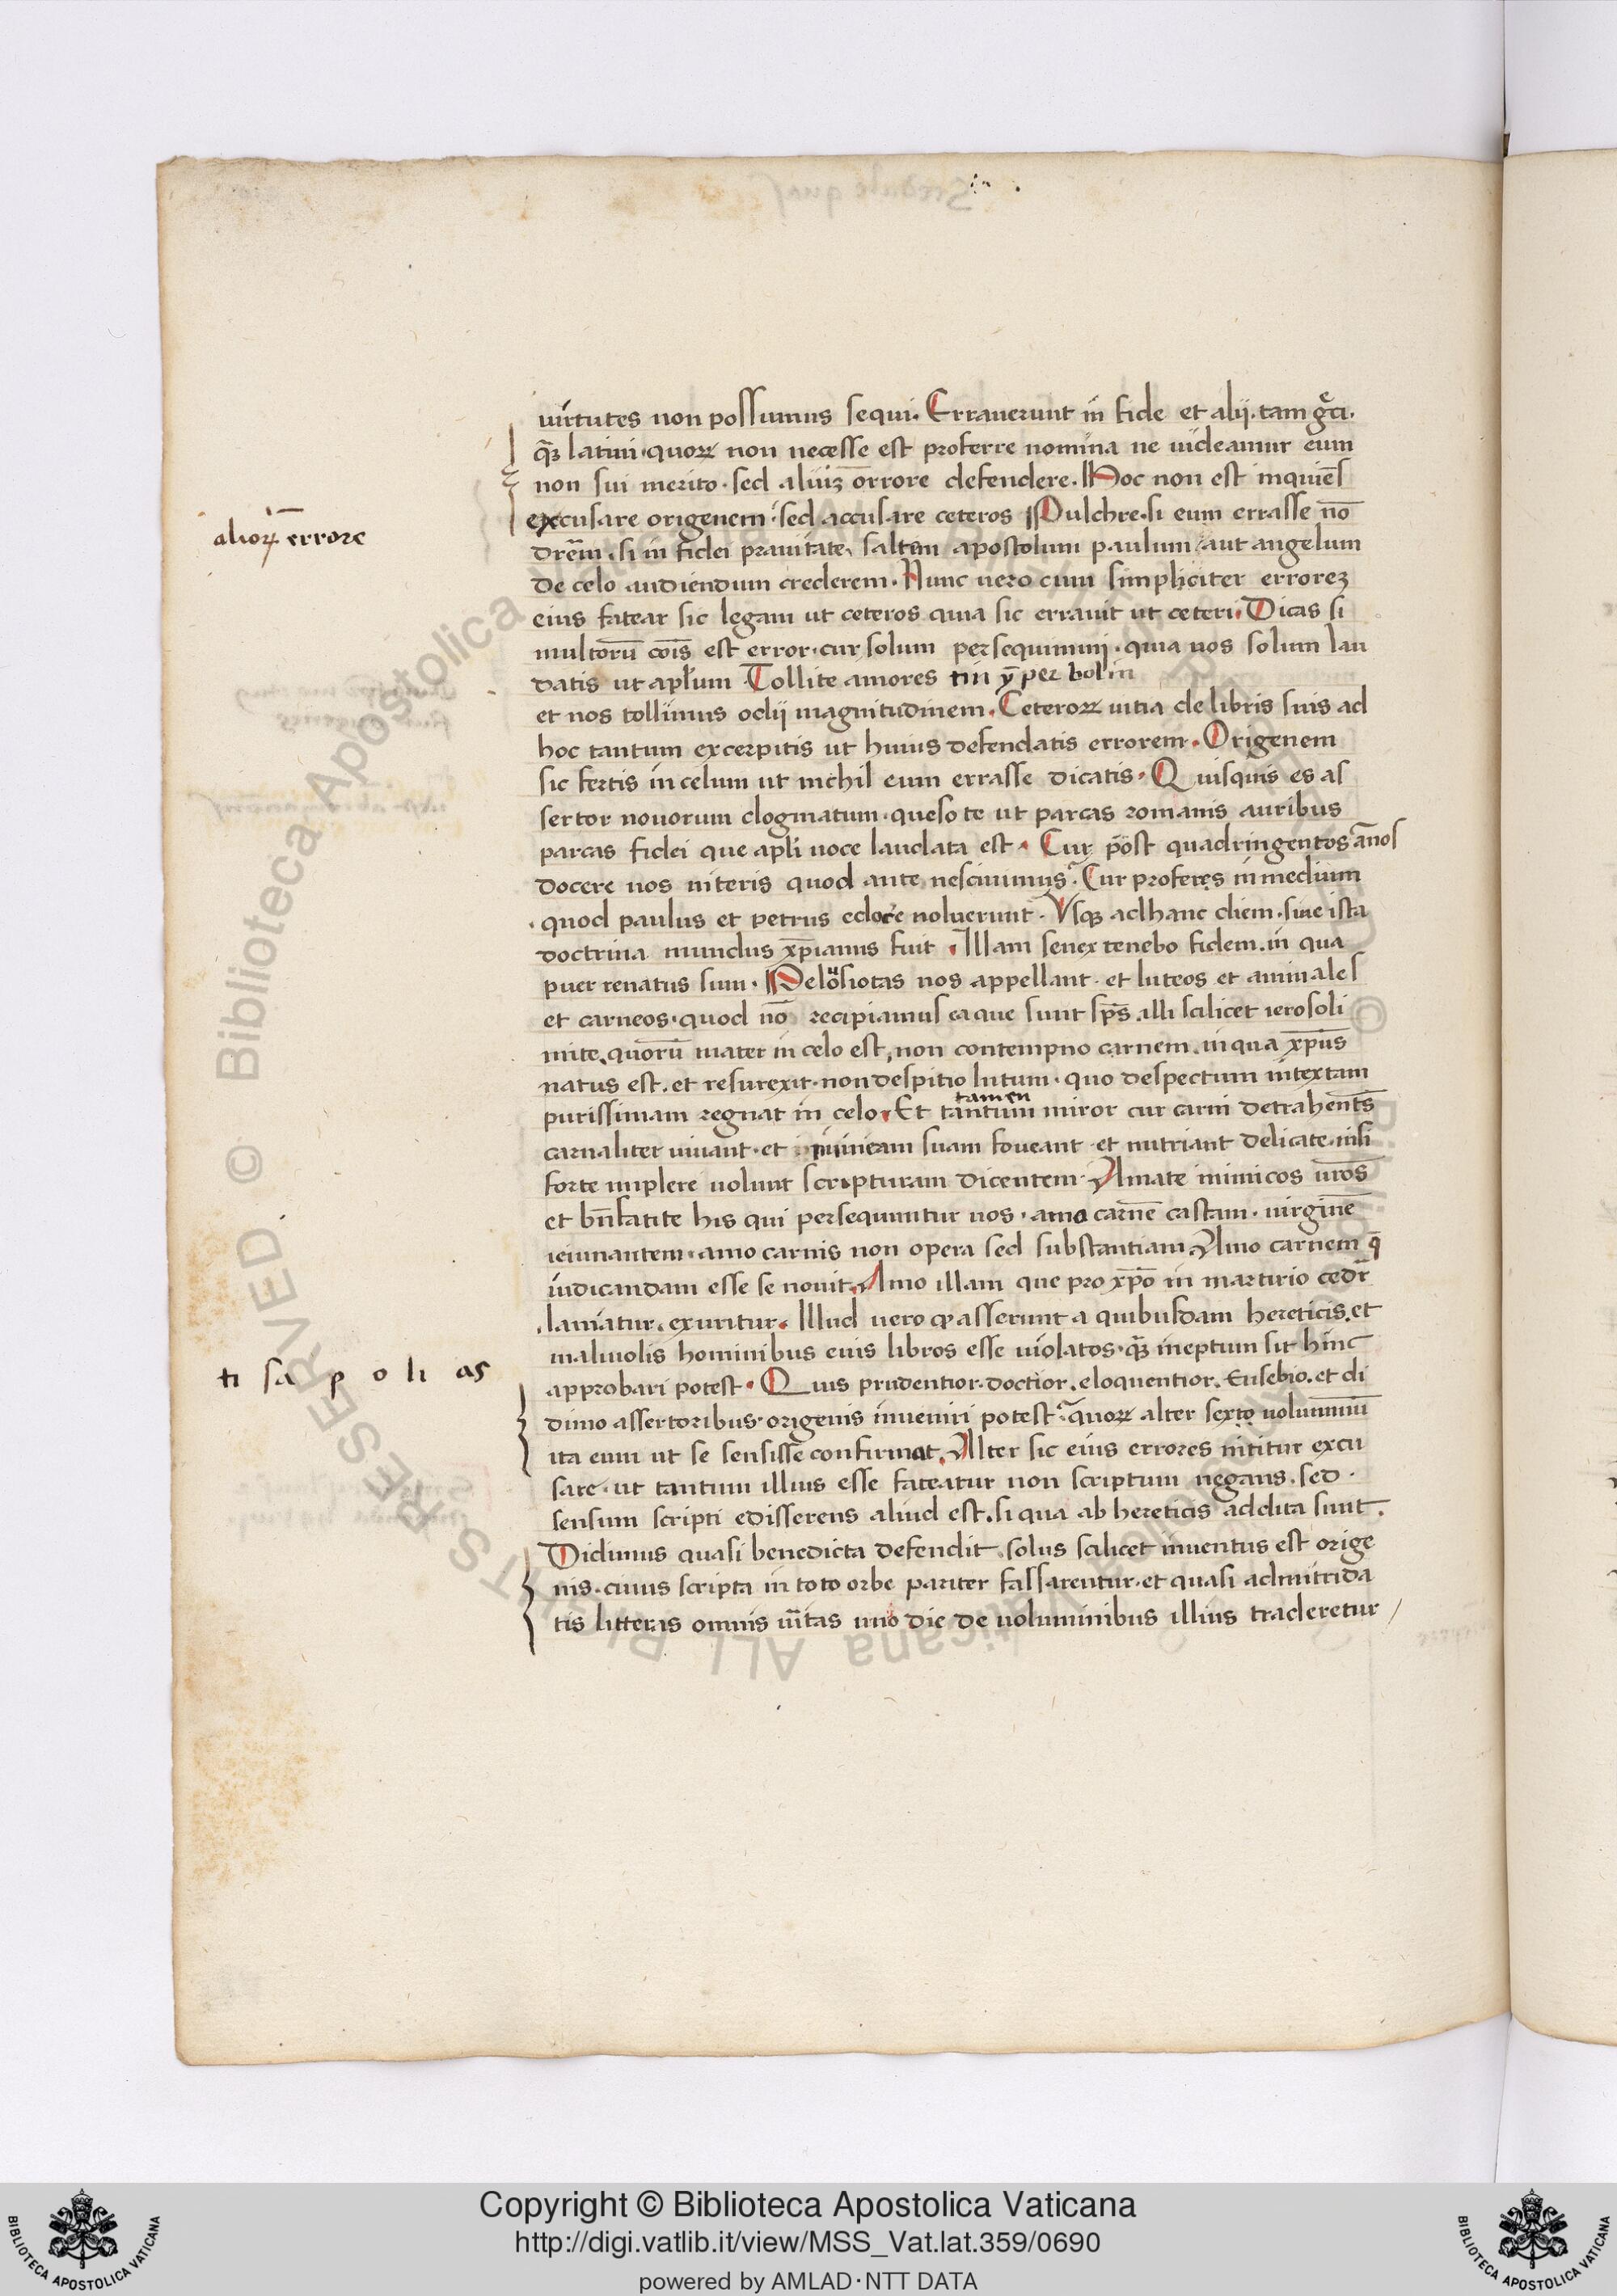 virtutes non possumus sequi. Erraverunt in fide et alij. tam gr̃ci.
q̃ȝ latini. quoꝝ non necesse est proferre nomina ne uideamur eum
non sui merito. sed aliuȝ orrore defendere. Hoc non est inquiẽs
excusare origenem. sed accusare ceteros Pulchre. si eum errasse nõ
alioꝝ errore
drẽm. si in fidei prauitate, saltem apostolum paulum aut angelum
de celo audiendum crederem. Nunc uero cum simpliciter erroreȝ
eius fatear sic legam ut ceteros quia sic errauit ut ceteri. Dicas si
multorũ cõis est error. cur solum persequimini. quia uos solum lau
datis ut apl̃um. Tollite amores tin ỹ per bol in
et nos tollimus odij magnitudinem. Ceteroꝝ uitia de libris suis ad
hoc tantum excerpitis ut huius defendatis errorem. Origenem
sic fertis in celum ut nichil eum errasse dicatis. Quisquis es as
sertor nouorum dogmatum. queso te ut parcas romanis auribus
parcas fidei que apli uoce laudata est. Cur põst quadringentos ãnos
docere nos niteris quod ante nesciuimus. Cur proferes in medium
quod paulus et petrus edocere noluerunt. Vsqȝ ad hanc diem. sine ista
doctrina mundus xp̃ianus fuit. Illam senex tenebo fidem. in qua
puer renatus sum. Pelusiotas nos appellant. et luteos et animales
et carneos. quod nõ recipiamus ea que sunt sp̃s. illi scilicet ierosoli
mite. quorũ mater in celo est, non contempno carnem. in qua xp̃us
natus est. et resurexit. non despitio lutum. quo despectum intextam
tamen
purissimam regnat in celo. Et tantum miror cur carni detrahent̃s
carnaliter uiuant. et inimicam suam foueant et nutriant delicate. nisi
forte implere uolunt scripturam dicentem. Amate inimicos ur̃os
et bñfatite his qui persequuntur uos. amo carnẽ castam. uirginẽ
ieiunantem. amo carnis non opera sed substantiam Amo carnem q̃
iudicandam esse se nouit. Amo illam que pro xp̃o in martirio cedr̃
laniatur. exuritur. Illud uero ꝙ asserunt a quibusdam hereticis. et
maliuolis hominibus euis libros esse uiolatos. q̃ȝ ineptum sit hinc
ti sa p o li as
approbari potest. Quis prudentior. doctior. eloquentior. Eusebio. et di
dimo assertoribus. origenis inueniri potest. quoꝝ alter sexto uoluminũ
ita eum ut se sensisse confirmat. Alter sic eius errores nititur excu
sare. ut tantum illius esse fateatur non scriptum negans. sed.
sensum scripti edisserens aliud est. si qua ab hereticis addita sunt.
Didimus quasi benedicta defendit. solus scilicet inuentus est orige
nis. cuius scripta in toto orbe pariter falsarentur. et quasi ad mitrida
tis litteras omnis ur̃itas uno die de uoluminibus illius traderetur /
© Biblioteca Apostolica Vaticana ALL RIGHTS RESERVED
Copyright © Biblioteca Apostolica Vaticana
http://digi.vatlib.it/view/MSS_Vat.lat.359/0690
powered by AMLAD·NTT DATA
BIBLIOTECA APOSTOLICA VATICANA
BIBLIOTECA APOSTOLICA VATICANA